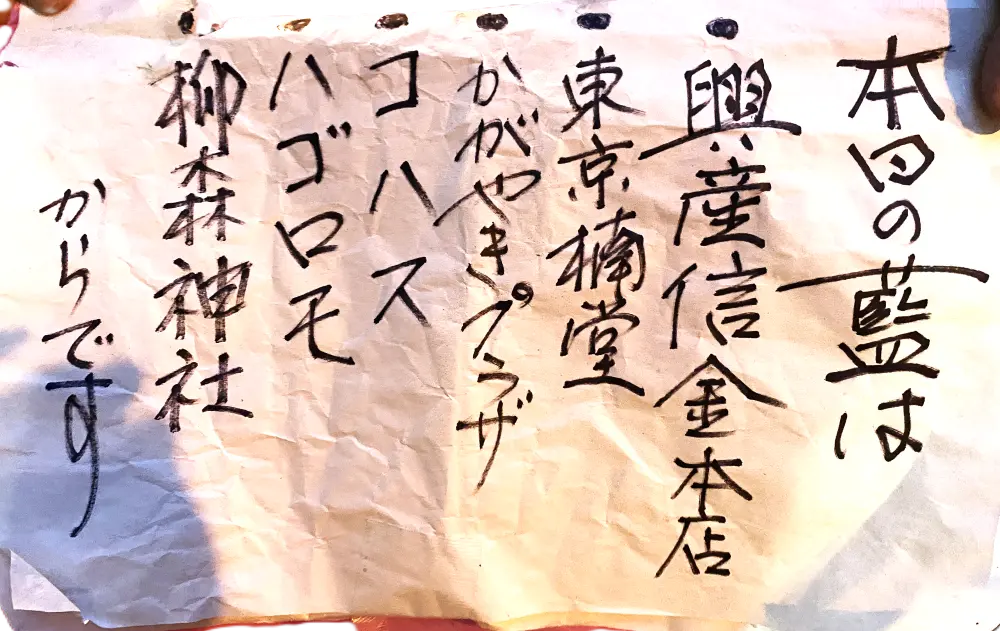 本日の藍は
・興産信金本店
・東京楠堂
・かがやきプラザ
・コハス
・ハゴロモ
・柳森神社
からです